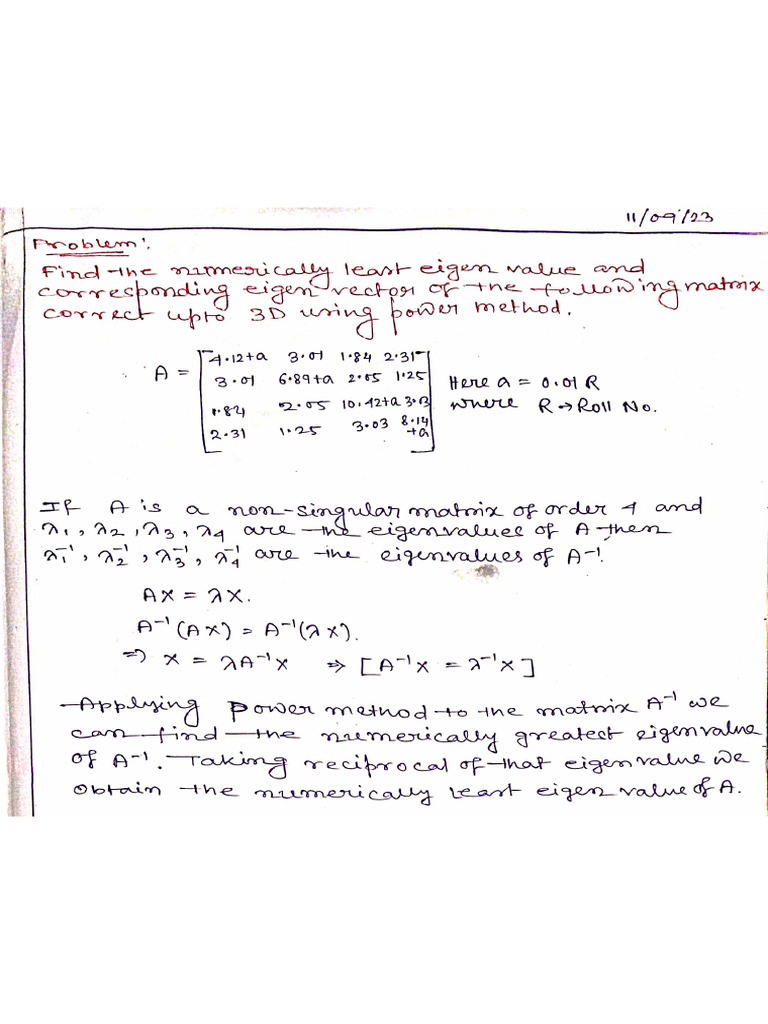 11/09/23
Problem:
Find the numerically least eigen value and
corresponding eigen vector of the following matrix
correct upto 3D using power method.
A = [4.12+a 3.01 1.84 2.31
3.01 6.89+a 2.05 1.25
1.84 2.05 10.12+a 3.03
2.31 1.25 3.03 8.14+a]
Here a = 0.01 R
where R → Roll No.
If A is a non-singular matrix of order 4 and
λ₁, λ₂, λ₃, λ₄ are the eigenvalues of A then
λ₁⁻¹, λ₂⁻¹, λ₃⁻¹, λ₄⁻¹ are the eigenvalues of A⁻¹.
AX = λX.
A⁻¹(AX) = A⁻¹(λX).
⇒ X = λA⁻¹X ⇒ [A⁻¹X = λ⁻¹X]
Applying power method to the matrix A⁻¹ we
can find the numerically greatest eigenvalue
of A⁻¹. Taking reciprocal of that eigenvalue we
obtain the numerically least eigen value of A.